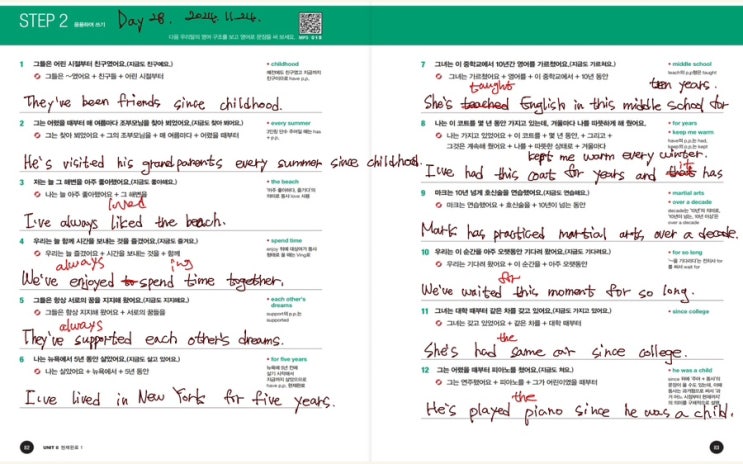 STEP 2 응용하여 쓰기 Day 28. 2024. 11. 24.
다음 우리말의 영어 구조를 보고 영어로 문장을 써 보세요. MP3 013
1 그들은 어린 시절부터 친구였어요.(지금도 친구예요.)
그들은 ~였어요 + 친구들 + 어린 시절부터
• childhood
예전에도 친구였고 지금까지
친구이므로 have p.p.
They've been friends since childhood.
2 그는 어렸을 때부터 매 여름마다 조부모님을 찾아 뵈었어요.(지금도 찾아 봬요.)
그는 찾아 뵈었어요 + 그의 조부모님을 + 매 여름마다 + 어렸을 때부터
• every summer
3인칭 단수 주어일 때는 has
+ p.p.
He's visited his grandparents every summer since childhood.
3 저는 늘 그 해변을 아주 좋아했어요.(지금도 좋아해요.)
나는 늘 아주 좋아했어요 + 그 해변을
• the beach
loved
I've always liked the beach.
4 우리는 늘 함께 시간을 보내는 것을 즐겼어요.(지금도 즐겨요.)
우리는 늘 즐겼어요 + 시간을 보내는 것을 + 함께
• spend time
always ing
We've enjoyed to spend time together.
5 그들은 항상 서로의 꿈을 지지해 왔어요.(지금도 지지해요.)
그들은 항상 지지해 왔어요 + 서로의 꿈들을
• each other's
dreams
support의 p.p.는
supported
always
They've supported each other's dreams.
6 나는 뉴욕에서 5년 동안 살았어요.(지금도 살고 있어요.)
나는 살았어요 + 뉴욕에서 + 5년 동안
• for five years
뉴욕에 5년 전에
살기 시작해서
지금까지 살았으므로
have p.p. 현재완료
I've lived in New York for five years.
82 UNIT 6 현재완료 1
7 그녀는 이 중학교에서 10년간 영어를 가르쳤어요.(지금도 가르쳐요.)
그녀는 가르쳤어요 + 영어를 + 이 중학교에서 + 10년 동안
• middle school
teach의 p.p.형은 taught
taught ten years.
She's teached English in this middle school for
8 나는 이 코트를 몇 년 동안 가지고 있는데, 겨울마다 나를 따뜻하게 해 줬어요.
나는 가지고 있었어요 + 이 코트를 + 몇 년 동안, + 그리고 +
그것은 계속해 줬어요 + 나를 + 따뜻한 상태로 + 겨울마다
• for years
• keep me warm
have의 p.p.는 had,
keep의 p.p.는 kept
kept me warm every winter.
it
I've had this coat for years and that has
9 마크는 10년 넘게 호신술을 연습했어요.(지금도 연습해요.)
마크는 연습했어요 + 호신술을 + 10년이 넘는 동안
• martial arts
• over a decade
Mark has practiced martial arts over a decade.
10 우리는 이 순간을 아주 오랫동안 기다려 왔어요.(지금도 기다려요.)
우리는 기다려 왔어요 + 이 순간을 + 아주 오랫동안
• for so long
for
We've waited this moment for so long.
11 그녀는 대학 때부터 같은 차를 갖고 있어요.(지금도 가지고 있어요.)
그녀는 갖고 있었어요 + 같은 차를 + 대학 때부터
• since college
the
She's had same car since college.
12 그는 어렸을 때부터 피아노를 쳤어요.(지금도 쳐요.)
그는 연주했어요 + 피아노를 + 그가 어린이였을 때부터
• he was a child
the
He's played piano since he was a child.
83